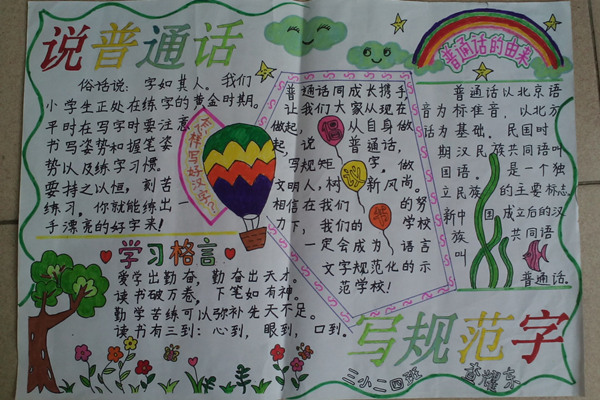 说普通话
俗话说：字如其人。我们
小学生正处在练字的黄金时期。
平时在写字时要注意
书写姿势和握笔姿
势以及练字习惯。
要持之以恒，刻苦
练习。你就能练出一
手漂亮的好字来！
怎样写好汉字？
学习格言
爱学出勤奋，勤奋出天才。
读书破万卷，下笔如有神。
勤学苦练可以弥补先天不足。
读书有三到：心到，眼到，口到。
普通话同成长携手
让我们大家从现在
做起，从自身做
起，说普通话，
写规矩字，做
文明人，树新风尚。
相信在我们的努
力下，我们的学校
一定会成为语言
文字规范化的示
范学校！
普通话的由来
普通话以北京语
音为标准音，以北方
话为基础，民国时
期汉民族共同语叫
国语，是一个独
立民族的主要标志
新中国成立后的汉
族共同语
叫
普通话。
写规范字
三小二四班